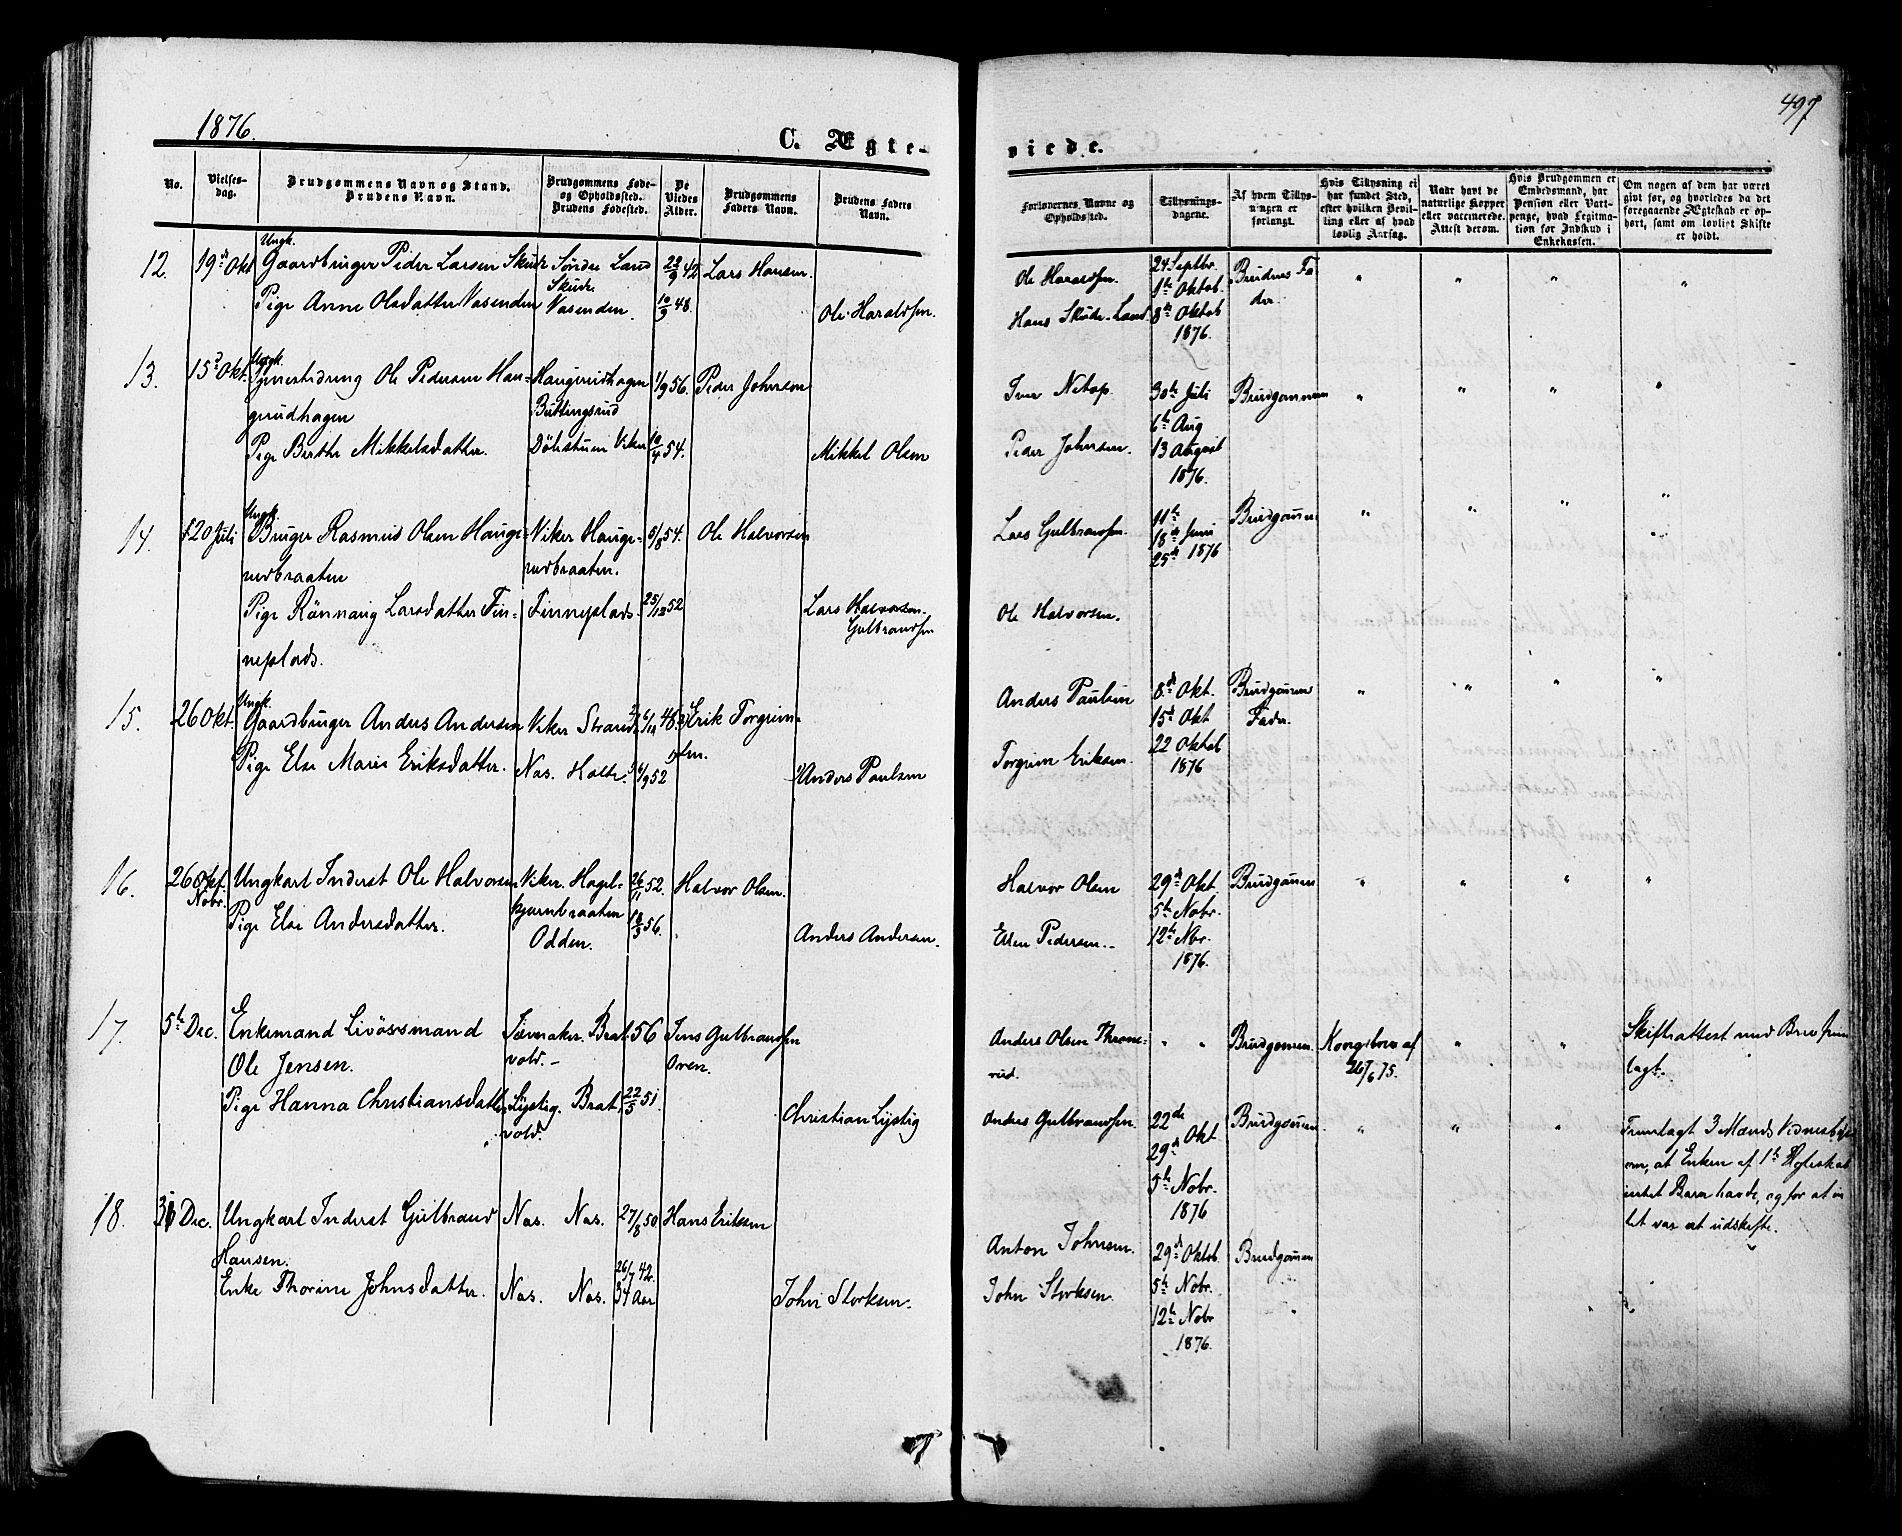 1876.
497
C. Ægte-
viede.
No.
Vielses-
dag.
Brudgommens Navn og Stand.
Brudens Navn.
Brudgommens Føde-
og Opholdssted.
Brudens Fødested.
De
Viedes
Alder.
Brudgommens
Faders Navn.
Brudens Faders
Navn.
Forlovernes Navne og
Opholdssted.
Tillysnings-
dagene.
Af hvem Tillys-
ningen er
forlangt.
Hvis Tillysning ei
har fundet Sted,
efter hvilken Bevil-
ling eller af hvad
lovlig Aarsag.
Naar havt de
naturlige Kopper
eller vaccinerede.
Attest derom.
Hvis Brudgommen er
Embedsmand, har
Pension eller Vart-
penge, hvad Legitima-
tion for Indskud i
Enkekassen.
Om nogen af dem har været
gift før, og hvorledes da det
foregaaende Ægteskab er op-
hørt, samt om lovligt Skifte
er holdt.
12.
19de Okt
Ungk.
Gaardbruger Peder Larsen Skute
Pige Anne Olsdatter Vasenden
Søndre Land
Skute
Vasenden.
22/9 42
10/9 48.
Lars Hansen.
Ole Haraldsen.
Ole Haraldsen.
Hans Skute-Land
24 Septbr.
1te Oktob.
8de Oktob
1876.
Brudens Fa
der.
" " " "
13.
15de Okt.
Ungk.
Ole Pedersen Hau-
gerudhagen
Pige Berthe Mikkelsdatter.
Haugerudhagen
Buttingsrud
Dølestuen Viker
1/9 56.
10/4 54.
Peder Johnsen
Mikkel Olsen
Iver Netop.
Peder Johnsen.
30te Juli
6te Aug
13 August
1876.
Brudgommen
" " " "
14.
20 Juli
Ungk.
Bruger Rasmus Olsen Hauge-
rudbraaten
Pige Rønnaug Larsdatter Fin-
neplads.
Viker Hauge-
rudbraaten.
Finneplads.
5/8 54.
25/12 52
Ole Halvorsen
Lars Halvorsen.
Gulbrandsen
Lars Gulbrandsen.
Ole Halvorsen.
11te
18de Juni
25de 1876
Brudgommen
" " " "
15.
26 Okt.
Ungk.
Gaardbruger Anders Andersen
Pige Else Marie Eriksdatter.
Viker Strand
Nas. Holte.
48
4/9 52
Erik Torgrim-
sen.
Anders Paulsen
Anders Paulsen
Torgrim Eriksen.
8de Okt.
15de Okt
22 Oktob
1876
Brudgommen
Fader.
" " " "
16.
26 Okt.
Nobr.
Ungkarl Inderst Ole Halvorsen
Pige Else Andersdatter.
Viker. Hagel-
kjernbraaten
Odden.
26/11 52.
18/3 56.
Halvor Olsen.
Anders Andersen.
Halvor Olsen
Elen Pedersen.
29de Okt.
5te Nobr.
12te Nbr.
1876.
Brudgommen
" " " "
17.
5te Dec.
Enkemand Livøssmand
Ole Jensen.
Pige Hanna Christiansdatter
Jævnaker. Brat-
vold.
Lystig. Brat
vold.
56
22/5 51.
Jens Gulbrandsen
Oren.
Christian Lystig
Anders Olsen Throne-
rud.
Anders Gulbrandsen.
" "
22de
29de Okt
5te Nobr.
1876
Brudgommen.
Brudgommen
Kongebrev af
26/6 75.
" "
Skifteattest med Brev frem
lagt.
Fremlagt 3 Mænds Vidnesbyrd
om, at Enken af 1te Ægteskab
intet Barn havde, og for at in
tet var at udskifte.
18.
31 Dec.
Ungkarl Inderst Gulbrand
Hansen.
Enke Thorine Johnsdatter.
Nas. Nas.
Nas. Nas.
27/8 50
26/7 42.
34 Aar
Hans Eriksen
John Storksen.
Anton Johnsen.
John Storksen.
29de Oktob.
5te Nobr.
12te Nobr
1876.
Brudgommen